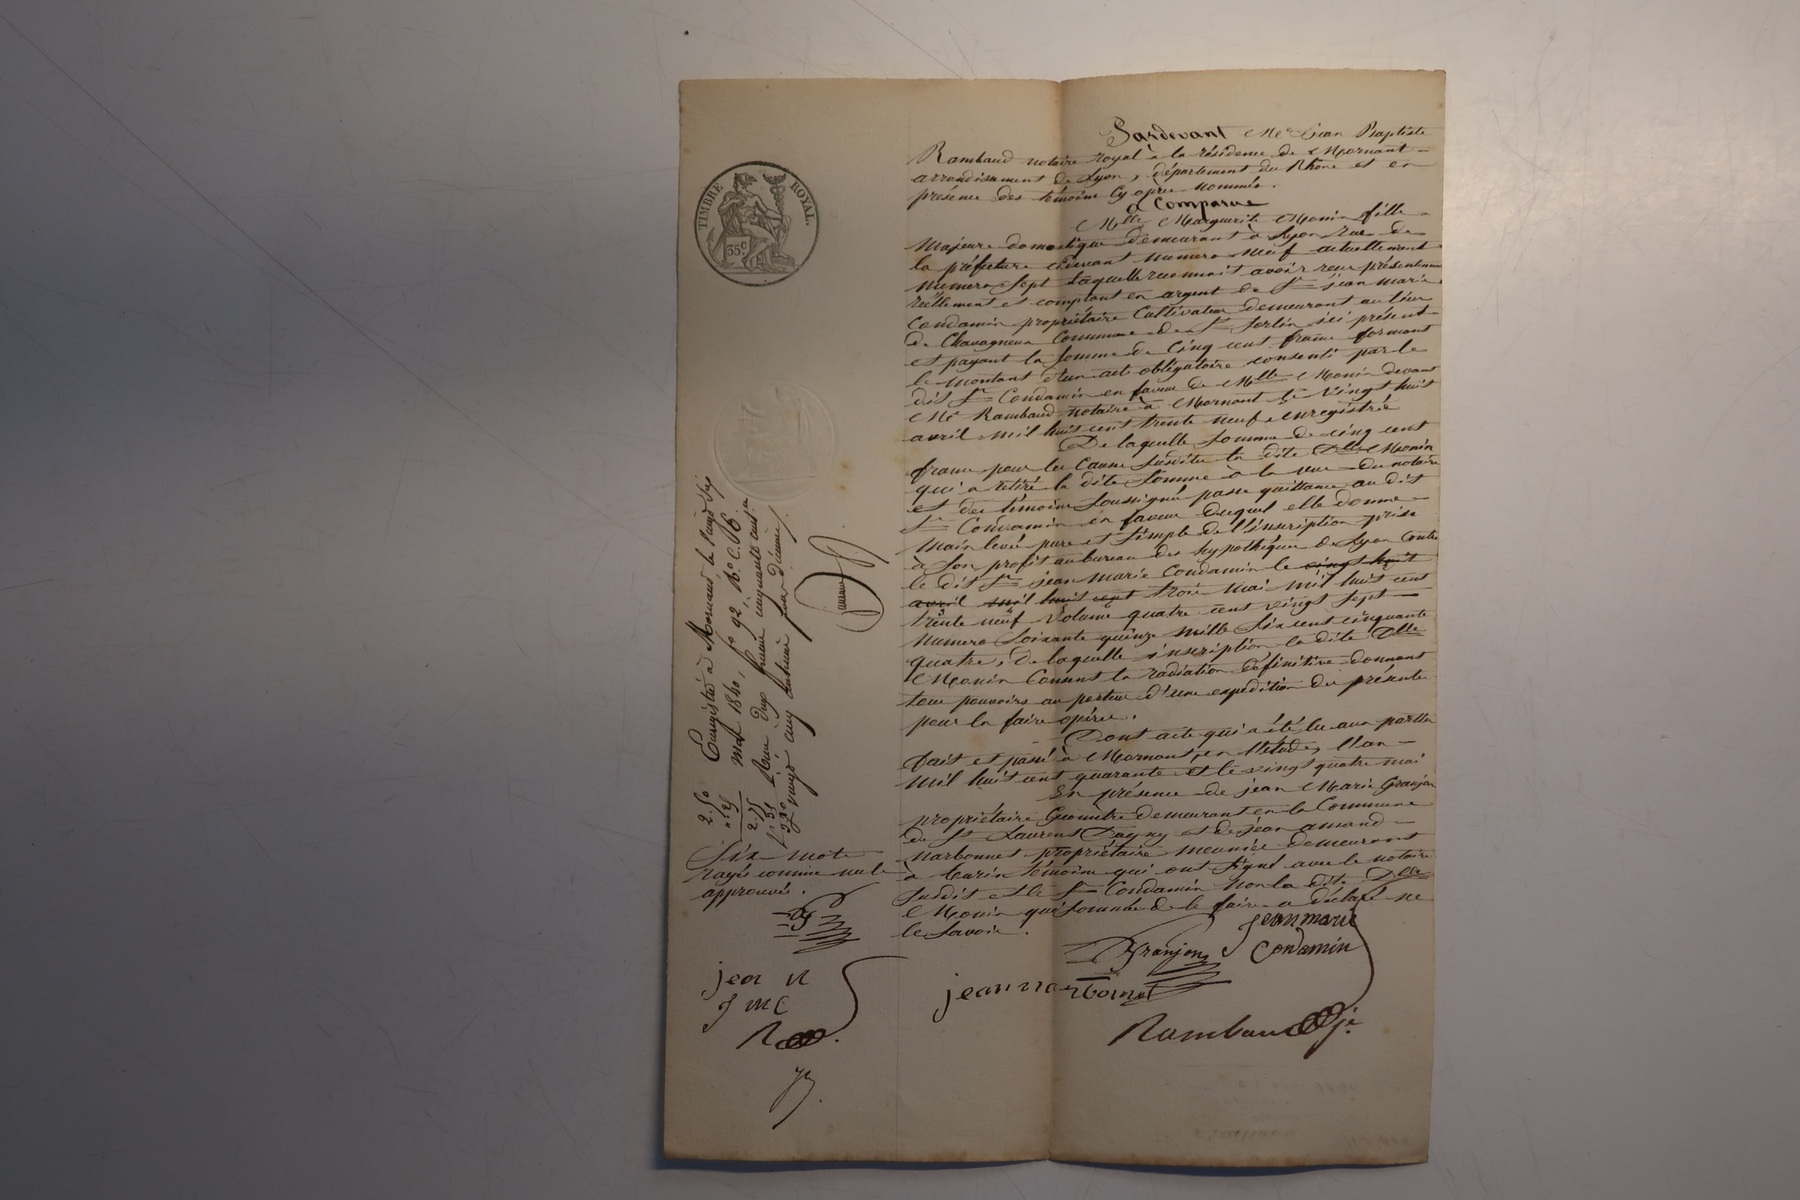 TIMBRE ROYAL
35c
Pardevant Me Jean Baptiste
Rambaud notaire royal à la résidence de Mornant
arrondissement de Lyon, département du Rhône et en
présence des témoins cy après nommés.
a Comparue
Mlle Marguerite Monin fille
majeure domestique demeurant à Lyon rue de
la préfecture cidevant numero neuf actuellement
numero sept laquelle reconnait avoir reçu présentement
réellement et comptant en argent de Sr jean marie
Condamin propriétaire Cultivateur demeurant au lieu
de Chavagneux Commune de St Sorlin ici présent
et payant la somme de Cinq cent francs formant
le montant d'un acte obligatoire consenti par le
dit Sr Condamin en faveur de Mlle Monin devant
Me Rambaud notaire à Mornant le vingt huit
avril mil huit cent trente neuf enregistré
De laquelle somme de cinq cent
francs pour les causes susdites la dite Dlle Monin
qui a retiré la dite somme à la vue du notaire
et des témoins soussignés passe quittance au dit
Sr Condamin en faveur duquel elle donne
main levée pure et simple de l'inscription prise
à son profit au bureau des hypothèques de Lyon contre
le dit Sr jean marie Condamin le vingt huit
avril mil huit cent trois mai mil huit cent
trente neuf volume quatre cent vingt sept
numero soixante quinze mille six cent cinquante
quatre, de laquelle inscription la dite Dlle
Monin consent la radiation définitive donnant
tous pouvoirs au porteur d'une expédition des présentes
pour la faire opérer.
Dont acte qui a été lu aux parties
fait et passé à Mornant, en l'étude, l'an
mil huit cent quarante et le vingt quatre mai
En présence de jean Marie Granjon
propriétaire Géomètre demeurant en la Commune
de St Laurent Dagny et de jean amand
Narbonnet propriétaire meunier demeurant
à témoins qui ont signé avec le notaire
susdit et le Sr Condamin non la dite Dlle
Monin qui sommée de le faire a déclaré ne
le savoir.
jeanmarie
Condamin
Granjon
jean narbonnet
Rambaud
Enregistré à Mornant le vingt six
mai 1840, fo 92, Ro C. 6
Reçu deux francs cinquante cent
vingt cinq centimes pour décime
2.50
25
2.75
Six mots
rayés comme nuls
approuvés.
jean N
J M C
R